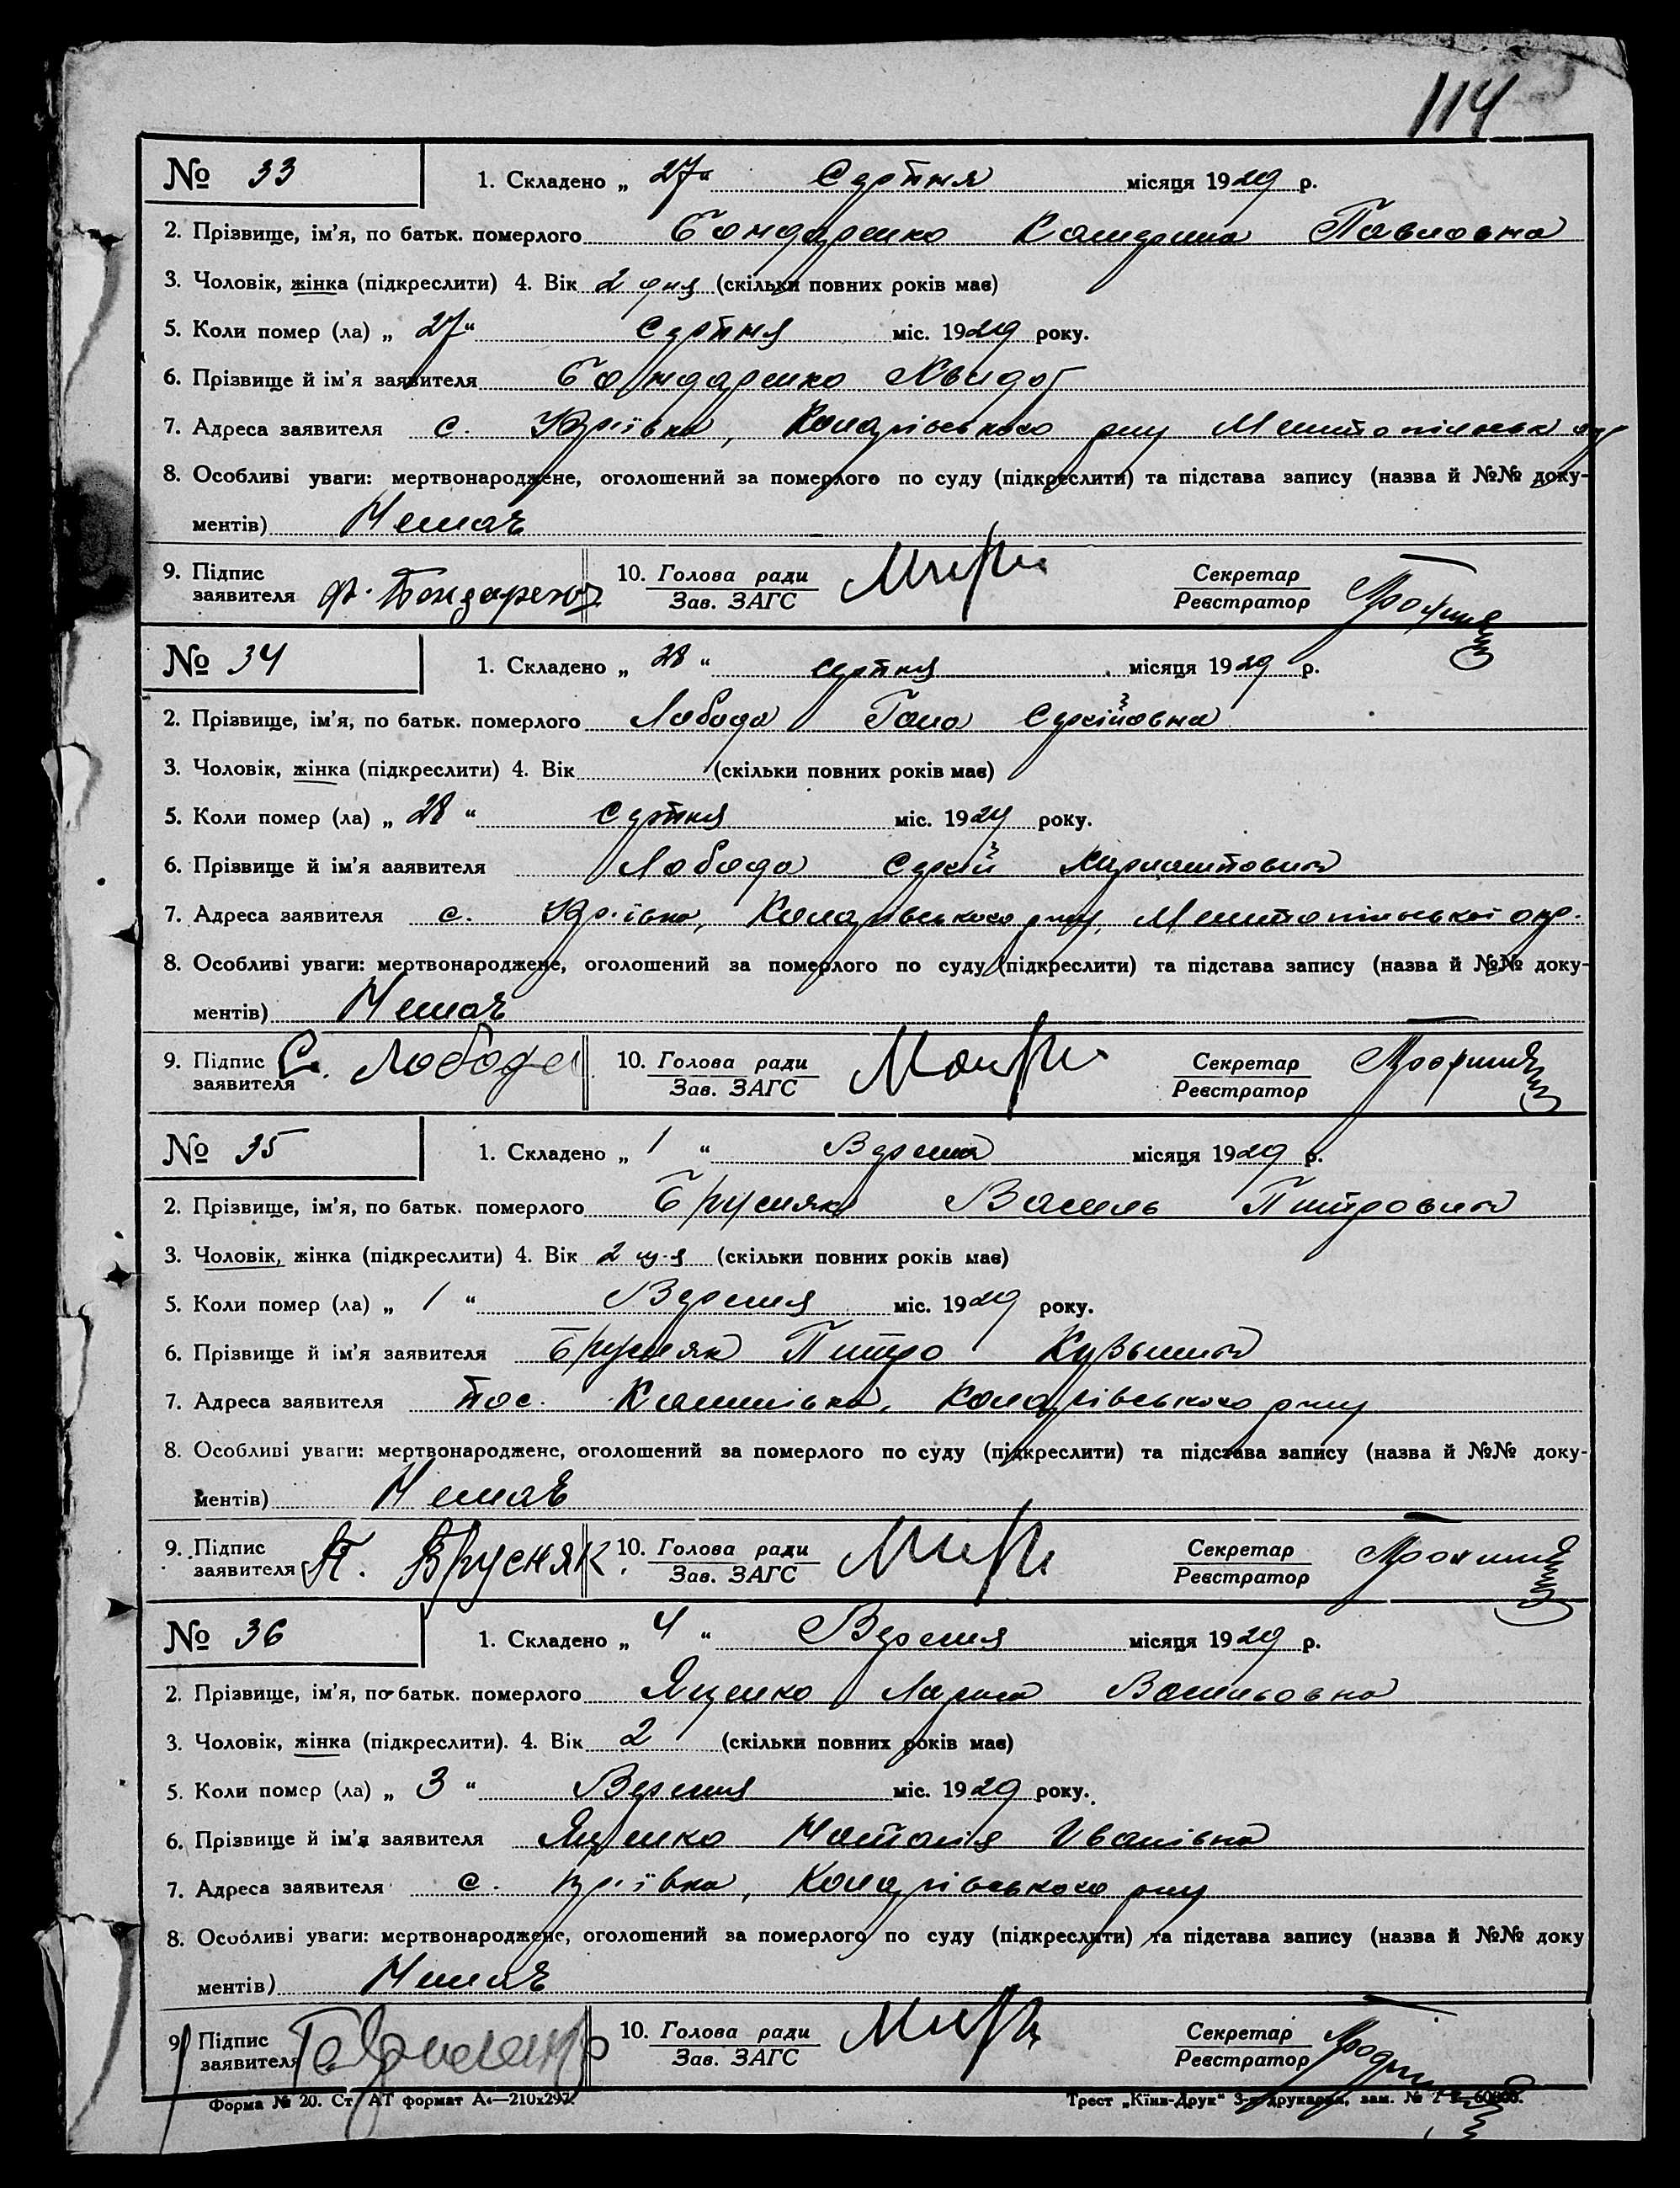 114
№ 33 1. Складено „ 27 “ Серпня місяця 1929 р.
2. Прізвище, ім'я, по батьк. померлого Бондаренко Катерина Павловна
3. Чоловік, жінка (підкреслити) 4. Вік 2 дня (скільки повних років має)
5. Коли помер (ла) „ 27 “ Серпня міс. 1929 року.
6. Прізвище й ім'я заявителя Бондаренко
7. Адреса заявителя с. Юр'ївка, Коларівського р-ну Мелітопільськ окр
8. Особливі уваги: мертвонароджене, оголошений за померлого по суду (підкреслити) та підстава запису (назва й №№ доку-
ментів) Немає
9. Підпис заявителя Ф. Бондаренко 10. Голова ради Зав. ЗАГС Секретар Реєстратор
№ 34 1. Складено „ 28 “ серпня місяця 1929 р.
2. Прізвище, ім'я, по батьк. померлого Лобода Гала Сергійовна
3. Чоловік, жінка (підкреслити) 4. Вік (скільки повних років має)
5. Коли помер (ла) „ 28 “ Серпня міс. 1929 року.
6. Прізвище й ім'я заявителя Лобода Сергій
7. Адреса заявителя с. Юр'ївка, Коларівського р-ну, Мелітопільської окр.
8. Особливі уваги: мертвонароджене, оголошений за померлого по суду (підкреслити) та підстава запису (назва й №№ доку-
ментів) Немає
9. Підпис заявителя С. Лобода 10. Голова ради Зав. ЗАГС Секретар Реєстратор
№ 35 1. Складено „ 1 “ Вересня місяця 1929 р.
2. Прізвище, ім'я, по батьк. померлого Брусняк Василь Питрович
3. Чоловік, жінка (підкреслити) 4. Вік 2 (скільки повних років має)
5. Коли помер (ла) „ 1 “ Вересня міс. 1929 року.
6. Прізвище й ім'я заявителя Брусняк Питро Кузьмич
7. Адреса заявителя пос. Коларівського р-ну
8. Особливі уваги: мертвонароджене, оголошений за померлого по суду (підкреслити) та підстава запису (назва й №№ доку-
ментів) Немає
9. Підпис заявителя П. Брусняк. 10. Голова ради Зав. ЗАГС Секретар Реєстратор
№ 36 1. Складено „ 4 “ Вересня місяця 1929 р.
2. Прізвище, ім'я, по батьк. померлого Яценко Лариса Васильовна
3. Чоловік, жінка (підкреслити). 4. Вік 2 (скільки повних років має)
5. Коли помер (ла) „ 3 “ Вересня міс. 1929 року.
6. Прізвище й ім'я заявителя Яценко Наталія Іванівна
7. Адреса заявителя с. Юр'ївка, Коларівського р-ну
8. Особливі уваги: мертвонароджене, оголошений за померлого по суду (підкреслити) та підстава запису (назва й №№ доку
ментів) Немає
9. Підпис заявителя 10. Голова ради Зав. ЗАГС Секретар Реєстратор
Форма № 20. Ст. АТ формат А₄—210х297. Трест „Київ-Друк“ 3-я друкарня, зам. №